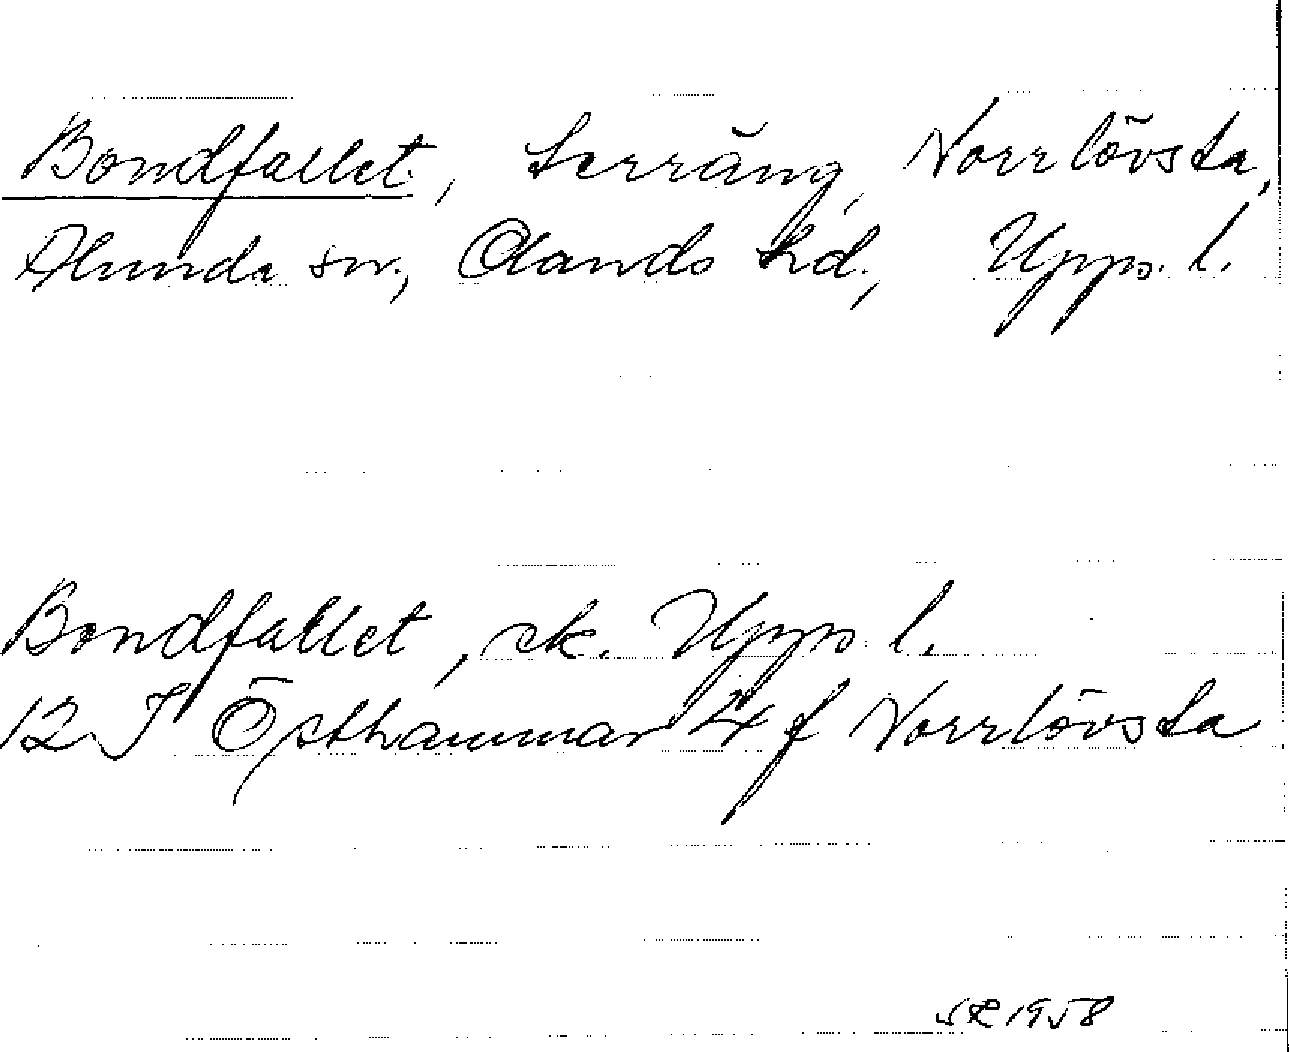 Bondfallet, terräng, Norrlövsta,
Alunda sn., Olands hd., Upps. l.
Bondfallet, ek. Upps l.
12 I Östhammar 4 f Norrlövsta
1958